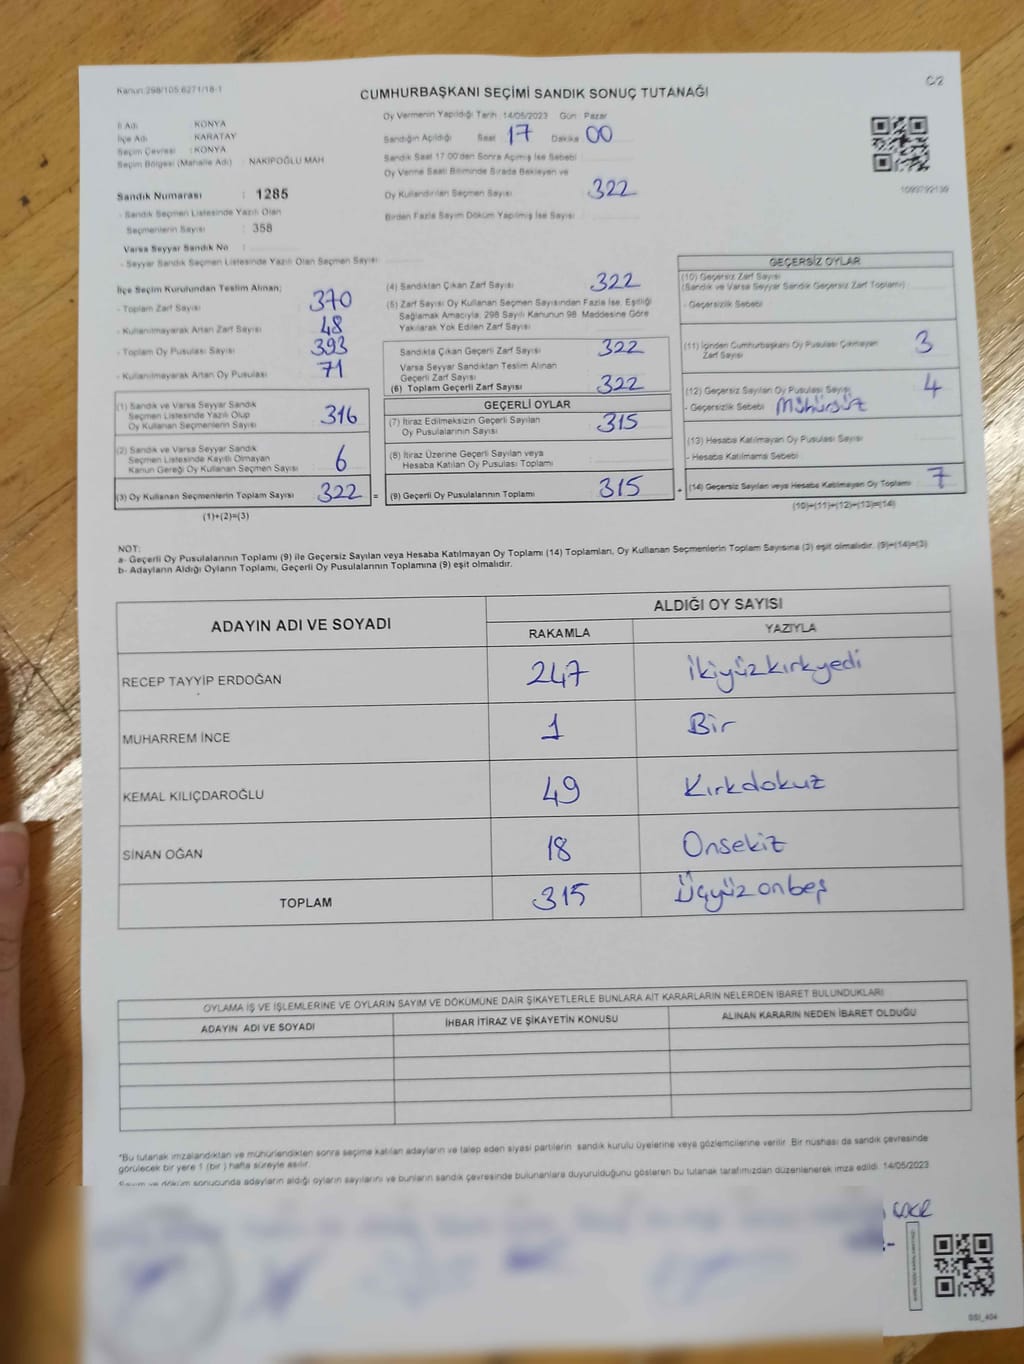 Kanun:298/105:6271/18-1
C/2
CUMHURBAŞKANI SEÇİMİ SANDIK SONUÇ TUTANAĞI
İl Adı : KONYA
İlçe Adı : KARATAY
Seçim Çevresi : KONYA
Seçim Bölgesi (Mahalle Adı) : NAKİPOĞLU MAH
Sandık Numarası : 1285
- Sandık Seçmen Listesinde Yazılı Olan
Seçmenlerin Sayısı : 358
Varsa Seyyar Sandık No :
- Seyyar Sandık Seçmen Listesinde Yazılı Olan Seçmen Sayısı
Oy Vermenin Yapıldığı Tarih : 14/05/2023 Gün : Pazar
Sandığın Açıldığı Saat 17 Dakika 00
Sandık Saat 17:00'den Sonra Açılmış İse Sebebi
Oy Verme Saati Bitiminde Sırada Bekleyen ve
Oy Kullandırılan Seçmen Sayısı 322
Birden Fazla Sayım Döküm Yapılmış İse Sayısı
1093792139
İlçe Seçim Kurulundan Teslim Alınan;
- Toplam Zarf Sayısı 370
- Kullanılmayarak Artan Zarf Sayısı 48
- Toplam Oy Pusulası Sayısı 393
- Kullanılmayarak Artan Oy Pusulası 71
(1) Sandık ve Varsa Seyyar Sandık
Seçmen Listesinde Yazılı Olup
Oy Kullanan Seçmenlerin Sayısı 316
(2) Sandık ve Varsa Seyyar Sandık
Seçmen Listesinde Kayıtlı Olmayan
Kanun Gereği Oy Kullanan Seçmen Sayısı 6
(3) Oy Kullanan Seçmenlerin Toplam Sayısı 322 =
(1)+(2)=(3)
(4) Sandıktan Çıkan Zarf Sayısı 322
(5) Zarf Sayısı Oy Kullanan Seçmen Sayısından Fazla İse, Eşitliği
Sağlamak Amacıyla; 298 Sayılı Kanunun 98. Maddesine Göre
Yakılarak Yok Edilen Zarf Sayısı
Sandıkta Çıkan Geçerli Zarf Sayısı 322
Varsa Seyyar Sandıktan Teslim Alınan
Geçerli Zarf Sayısı
(6) Toplam Geçerli Zarf Sayısı 322
GEÇERLİ OYLAR
(7) İtiraz Edilmeksizin Geçerli Sayılan
Oy Pusulalarının Sayısı 315
(8) İtiraz Üzerine Geçerli Sayılan veya
Hesaba Katılan Oy Pusulası Toplamı
(9) Geçerli Oy Pusulalarının Toplamı 315 +
GEÇERSİZ OYLAR
(10) Geçersiz Zarf Sayısı
(Sandık ve Varsa Seyyar Sandık Geçersiz Zarf Toplamı)
- Geçersizlik Sebebi
(11) İçinden Cumhurbaşkanı Oy Pusulası Çıkmayan
Zarf Sayısı 3
(12) Geçersiz Sayılan Oy Pusulası Sayısı 4
- Geçersizlik Sebebi Mühürsüz
(13) Hesaba Katılmayan Oy Pusulası Sayısı
- Hesaba Katılmama Sebebi
(14) Geçersiz Sayılan veya Hesaba Katılmayan Oy Toplamı 7
(10)+(11)+(12)+(13)=(14)
NOT:
a- Geçerli Oy Pusulalarının Toplamı (9) ile Geçersiz Sayılan veya Hesaba Katılmayan Oy Toplamı (14) Toplamları, Oy Kullanan Seçmenlerin Toplam Sayısına (3) eşit olmalıdır. (9)+(14)=(3)
b- Adayların Aldığı Oyların Toplamı, Geçerli Oy Pusulalarının Toplamına (9) eşit olmalıdır.
ADAYIN ADI VE SOYADI
ALDIĞI OY SAYISI
RAKAMLA YAZIYLA
RECEP TAYYİP ERDOĞAN 247 İkiyüzkırkyedi
MUHARREM İNCE 1 Bir
KEMAL KILIÇDAROĞLU 49 Kırkdokuz
SİNAN OĞAN 18 Onsekiz
TOPLAM 315 Üçyüzonbeş
OYLAMA İŞ VE İŞLEMLERİNE VE OYLARIN SAYIM VE DÖKÜMÜNE DAİR ŞİKAYETLERLE BUNLARA AİT KARARLARIN NELERDEN İBARET BULUNDUKLARI
ADAYIN ADI VE SOYADI İHBAR İTİRAZ VE ŞİKAYETİN KONUSU ALINAN KARARIN NEDEN İBARET OLDUĞU
*Bu tutanak imzalandıktan ve mühürlendikten sonra seçime katılan adayların ve talep eden siyasi partilerin sandık kurulu üyelerine veya gözlemcilerine verilir. Bir nüshası da sandık çevresinde
görülecek bir yere 1 (bir) hafta süreyle asılır.
Sayım ve döküm sonucunda adayların aldığı oyların sayılarını ve bunların sandık çevresinde bulunanlara duyurulduğunu gösteren bu tutanak tarafımızdan düzenlenerek imza edildi. 14/05/2023
SSI_404